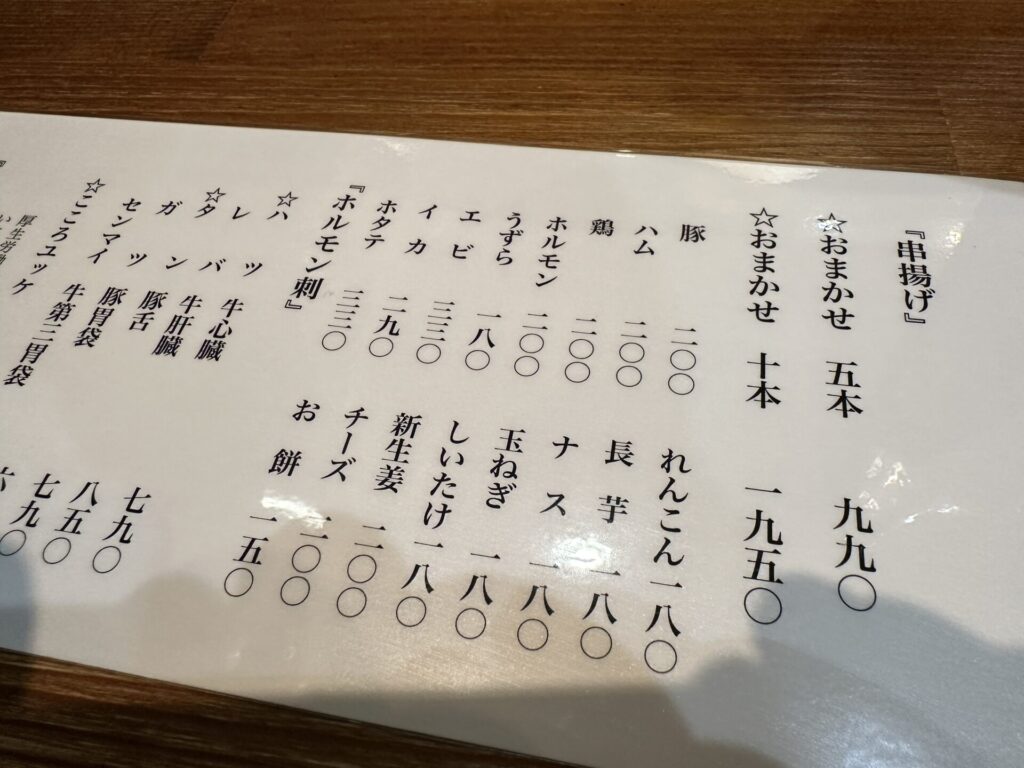 『串揚げ』
☆おまかせ 五本 九九〇
☆おまかせ 十本 一九五〇
豚 二〇〇 れんこん 一八〇
ハム 二〇〇 長芋 一八〇
鶏 二〇〇 ナス 一八〇
ホルモン 二〇〇 玉ねぎ 一八〇
うずら 一八〇 しいたけ 一八〇
エビ 三三〇 新生姜 二〇〇
イカ 二九〇 チーズ 二〇〇
ホタテ 三三〇 お餅 一五〇
『ホルモン刺』
☆ハツ 牛心臓 七九〇
レバ 牛肝臓 八五〇
☆タン 豚舌 七九〇
ガツ 豚胃袋
センマイ 牛第三胃袋
☆こころユッケ
厚生労働